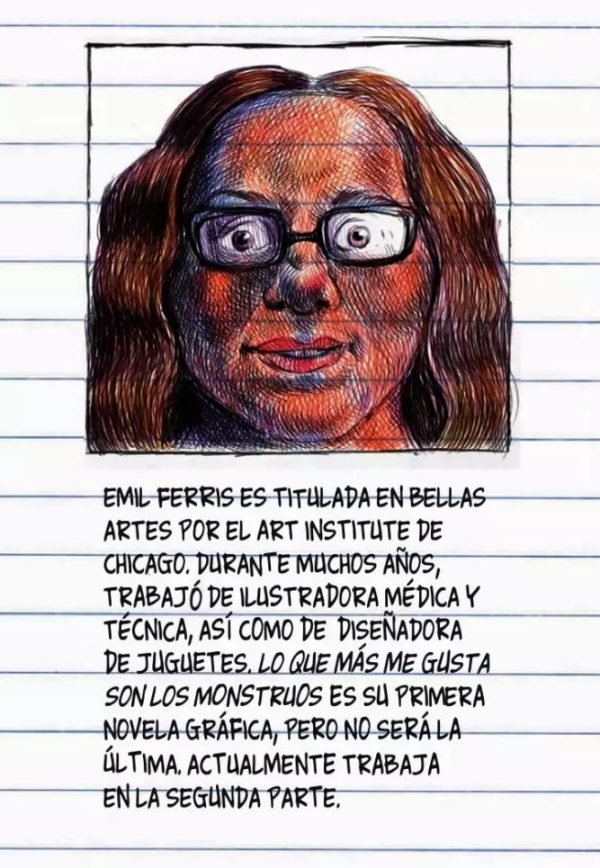 EMIL FERRIS ES TITULADA EN BELLAS
ARTES POR EL ART INSTITUTE DE
CHICAGO. DURANTE MUCHOS AÑOS,
TRABAJÓ DE ILUSTRADORA MÉDICA Y
TÉCNICA, ASÍ COMO DE DISEÑADORA
DE JUGUETES. LO QUE MÁS ME GUSTA
SON LOS MONSTRUOS ES SU PRIMERA
NOVELA GRÁFICA, PERO NO SERÁ LA
ÚLTIMA. ACTUALMENTE TRABAJA
EN LA SEGUNDA PARTE.